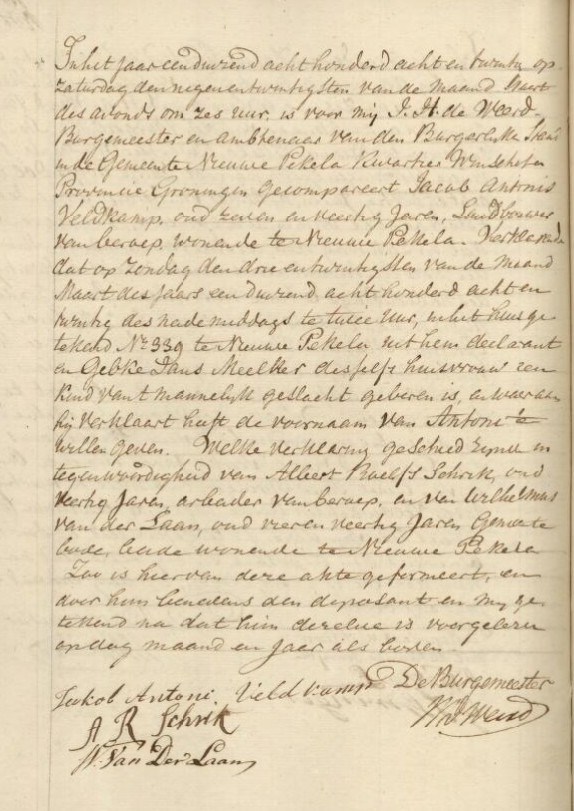 In het jaar een duizend acht honderd acht en twintig op
Zaturdag den negen en twintigsten van de maand Maart
des avonds om zes uur, is voor mij J. H. de Weerd
Burgemeester en ambtenaar van den Burgerlijke Stand
in de Gemeente Nieuwe Pekela Kwartier Winschoten
Provincie Groningen gecompareert Jacob Antonis
Veldkamp, oud zeven en veertig Jaren, Landbouwer
van beroep, wonende te Nieuwe Pekela. Verklarende
dat op Zondag den drie en twintigsten van de maand
Maart des jaars een duizend acht honderd acht en
twintig des nademiddags te twee uur, in het huis ge
tekend No 339 te Nieuwe Pekela uit hem declarant
en Gebke Jans Meelker desselfs huisvrouw een
kind van t mannelijk geslacht geboren is, en waaraan
hij verklaart heeft de voornaam van Antoni te
willen geven. Welke verklaring geschied zijnde in
tegenwoordigheid van Albert Roelfs Schrik, oud
veertig Jaren, arbeider van beroep, en van Wilhelmus
van der Laan, oud vier en veertig Jaren Gemeente
bode, beide wonende te Nieuwe Pekela
Zoo is hiervan deze akte geformeert, en
door hun benevens den deposant en mij ge
tekend na dat hun dezelve is voorgelezen
op dag maand en jaar als boven.
Jakob Antoni Veldkamp De Burgemeester
A R Schrik
W. Van Der Laan